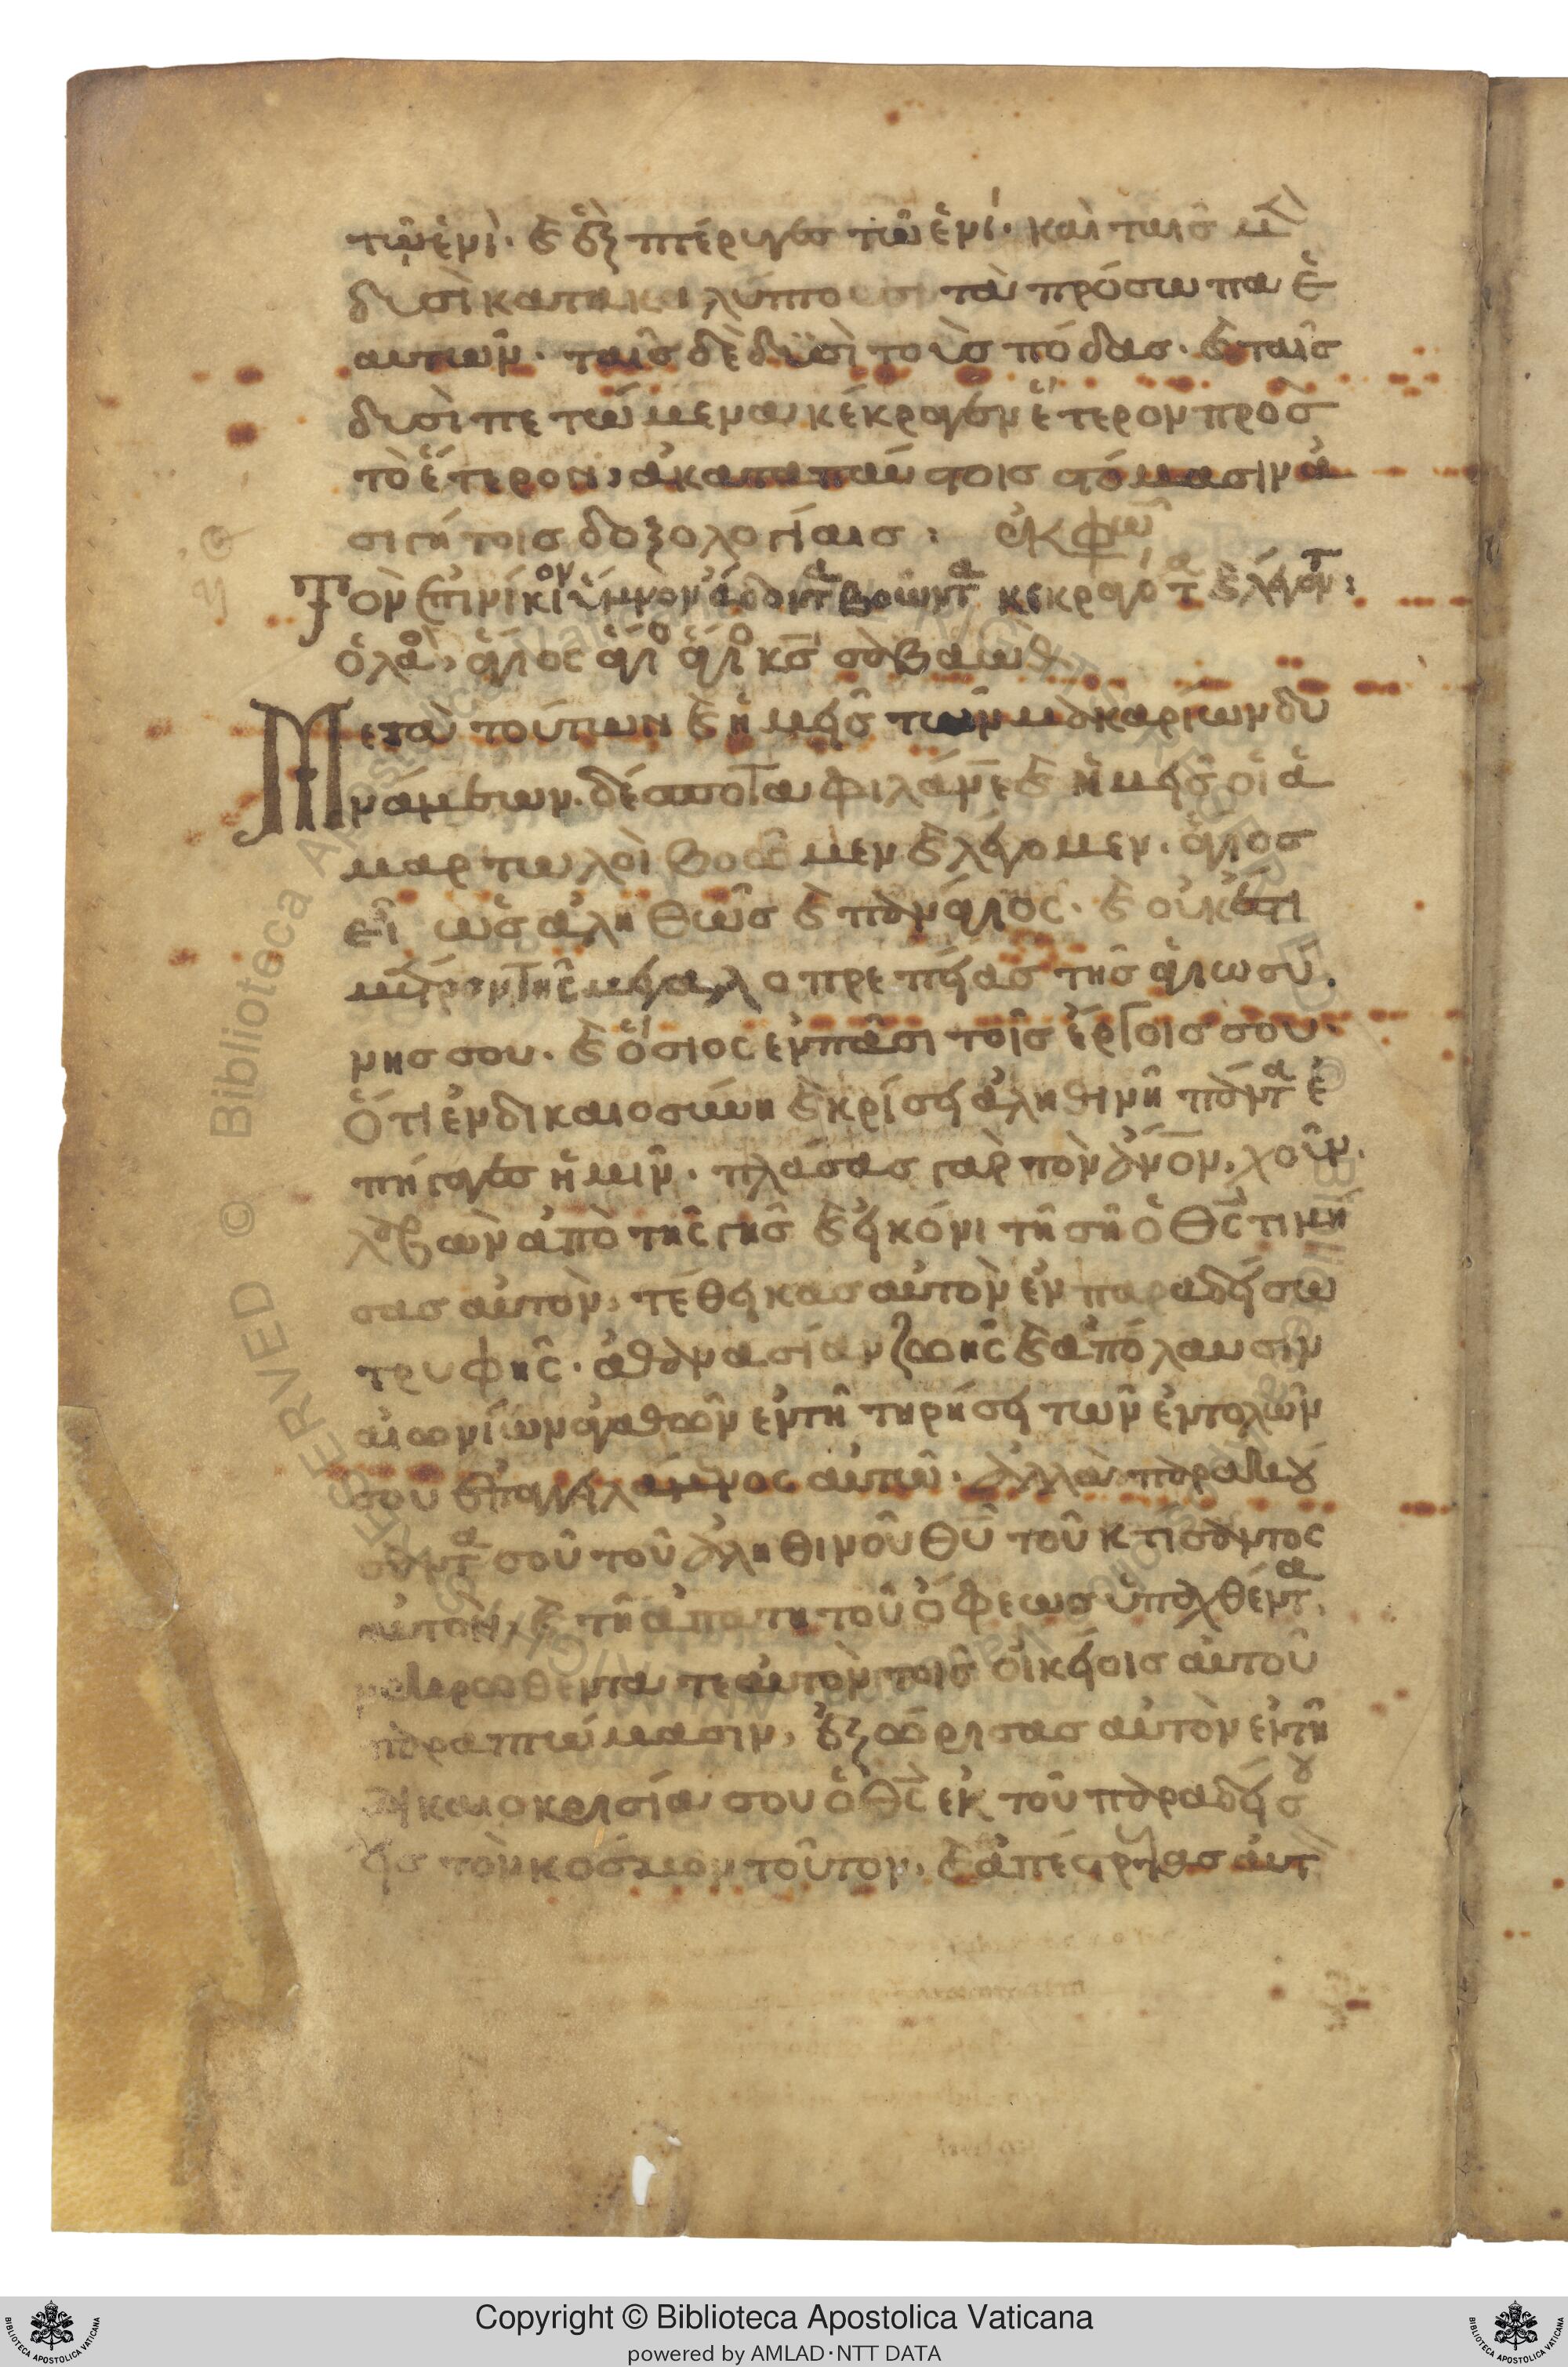 τῷ ἑνὶ· ϗ ἓξ πτέρυγες τῷ ἑνί· καὶ ταῖς μ(ὲν)
δυσὶ κατακαλύπτουσι τὰ πρόσωπα ἑ
αυτῶν· ταῖς δὲ δυσὶ τοὺς πόδας· ϗ ταῖς
δυσὶ πετώμενα κέκραγεν ἕτερον πρὸς
τὸ ἕτερον, ἀκαταπαύστοις στόμασιν ἀ
σιγήτοις δοξολογίαις: ἐκφώ
Τὸν ἐπινίκιον ὕμνον ἄδοντα βοῶντα κεκραγότα ϗ λέγοντ:
ὁ λαὸ, ἅγιος ἅγιο ἅγιο κς σαβαώθ
Μετὰ τούτων ϗ ἡμεῖς τῶν μακαρίων δυ
νάμεων. δέσποτα φιλάνε ϗ ἡμεῖς οἱ ἁ
μαρτωλοὶ βοῶμεν ϗ λέγομεν. ἅγιος
εἶ ὡς ἀληθῶς ϗ πανάγιος· ϗ οὐκ ἔστι
μέτρον τῆς μεγαλοπρεπείας τῆς ἁγιωσύ
νης σου. ϗ ὅσιος ἐν πᾶσι τοῖς ἔργοις σου·
Ὅτι ἐν δικαιοσύνη ϗ κρίσει ἀληθινῆ πάντα ἐ
πήγαγες ἡμῖν. πλάσας γὰρ τὸν ἄνον, χοῦν
λαβὼν ἀπὸ τῆς γῆς ϗ εἰκόνι τῆ σῆ ὁ θς τιμή
σας αὐτὸν, τέθεικας αὐτὸν ἐν παραδείσω
τρυφῆς. ἀθανασίαν ζωῆς ϗ ἀπόλαυσιν
αἰωνίων ἀγαθῶν ἐν τῆ τηρήσει τῶν ἐντολῶν
σου ἐπαγγειλάμενος αὐτῶ. ἀλλὰ παρακού
σαντα σοῦ τοῦ ἀληθινοῦ θυ τοῦ κτίσαντος
αὐτὸν, ϗ τῆ ἀπάτη τοῦ ὄφεως ὑπαχθέντα,
νεκρωθέντα τε αὐτὸν τοῖς οἰκείοις αὐτοῦ
παραπτώμασιν, ἐξώρισας αὐτὸν ἐν τῆ
δικαιοκρισία σου ὁ θς ἐκ τοῦ παραδείσου
εἰς τὸν κόσμον τοῦτον. ϗ ἀπέστρεψας αὐτ
Copyright © Biblioteca Apostolica Vaticana
powered by AMLAD·NTT DATA